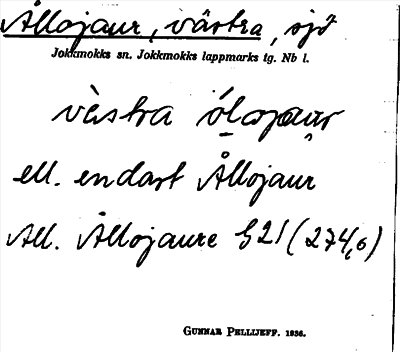 Ållojaur, västra, sjö
Jokkmokks sn. Jokkmokks lappmarks tg. Nb l.
vàstra ólojaur
ell. endast Ållojaur
All. Ållojaure G21 (274,6)
GUNNAR PELLIJEFF. 1936.